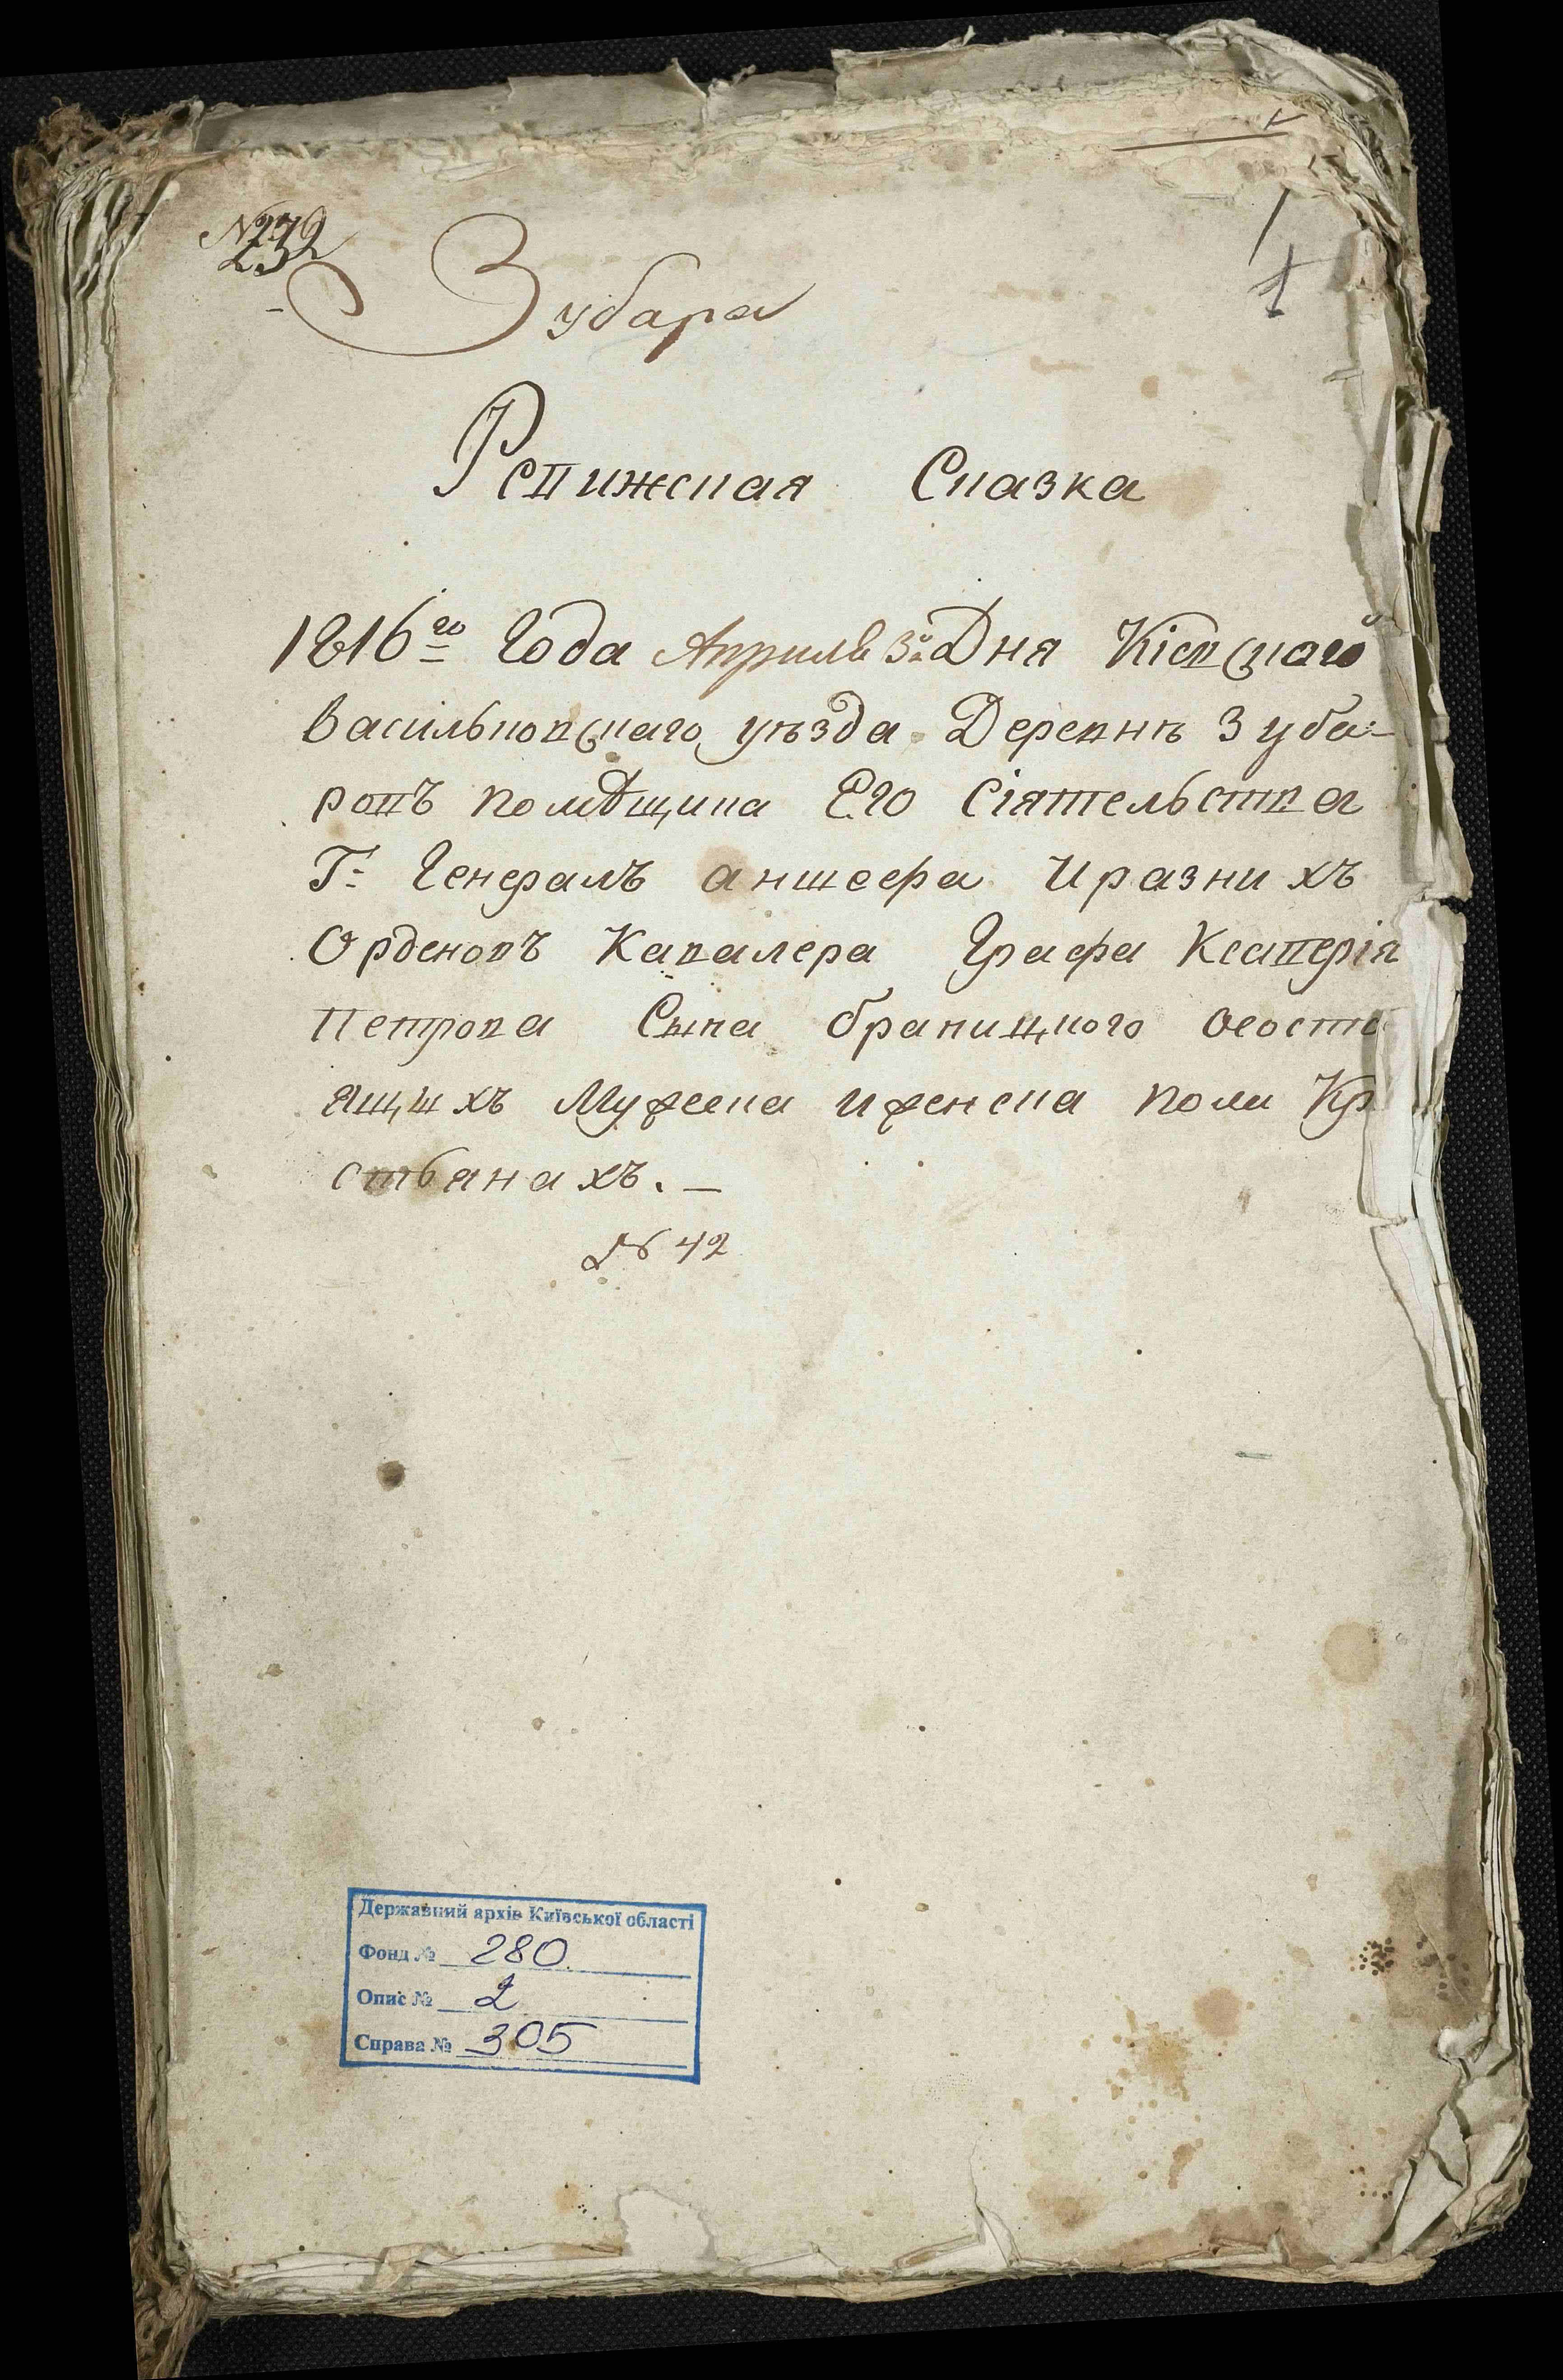 № 232
Зубара
1
1
Ревижская Сказка
1816го Года Априля 3го Дня Кіевскаго
Васильковскаго уѣзда Деревнѣ Зуба-
ровъ помѣщика Его Сіятельства
Г: Генералъ аншефа И разныхъ
Орденовъ Кавалера Графа Ксаверія
Петрова Сына браницкого ососто
ящихъ Мужеска и женска пола Кр
стьянахъ. —
№ 42
Державний архів Київської області
Фонд № 280
Опис № 2
Справа № 305